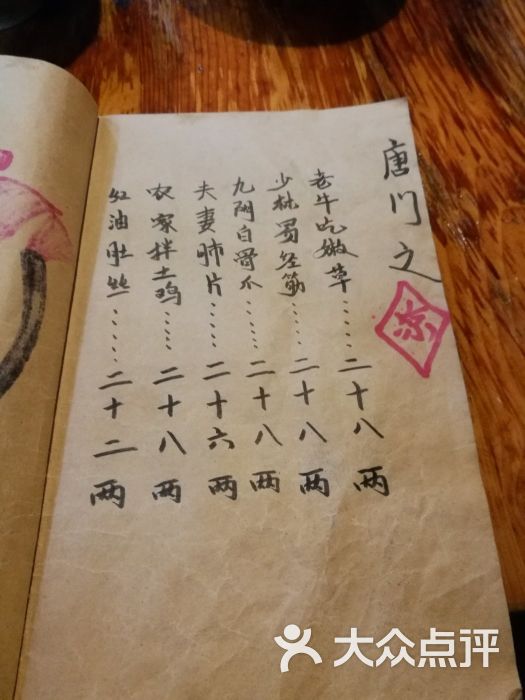 唐门之
凉
老牛吃嫩草……二十八两
少林蜀经筋……二十八两
九阴白骨爪……二十八两
夫妻肺片……二十六两
农家拌土鸡……二十八两
红油肚丝……二十二两
大众点评